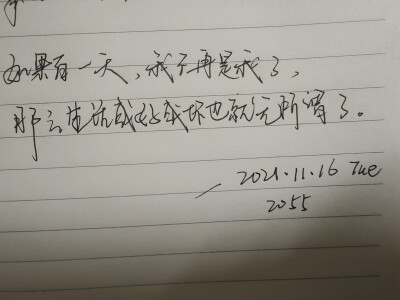 如果有一天，我不再是我了，
那么生活或好或坏也就无所谓了。
2021.11.16 Tue
2055